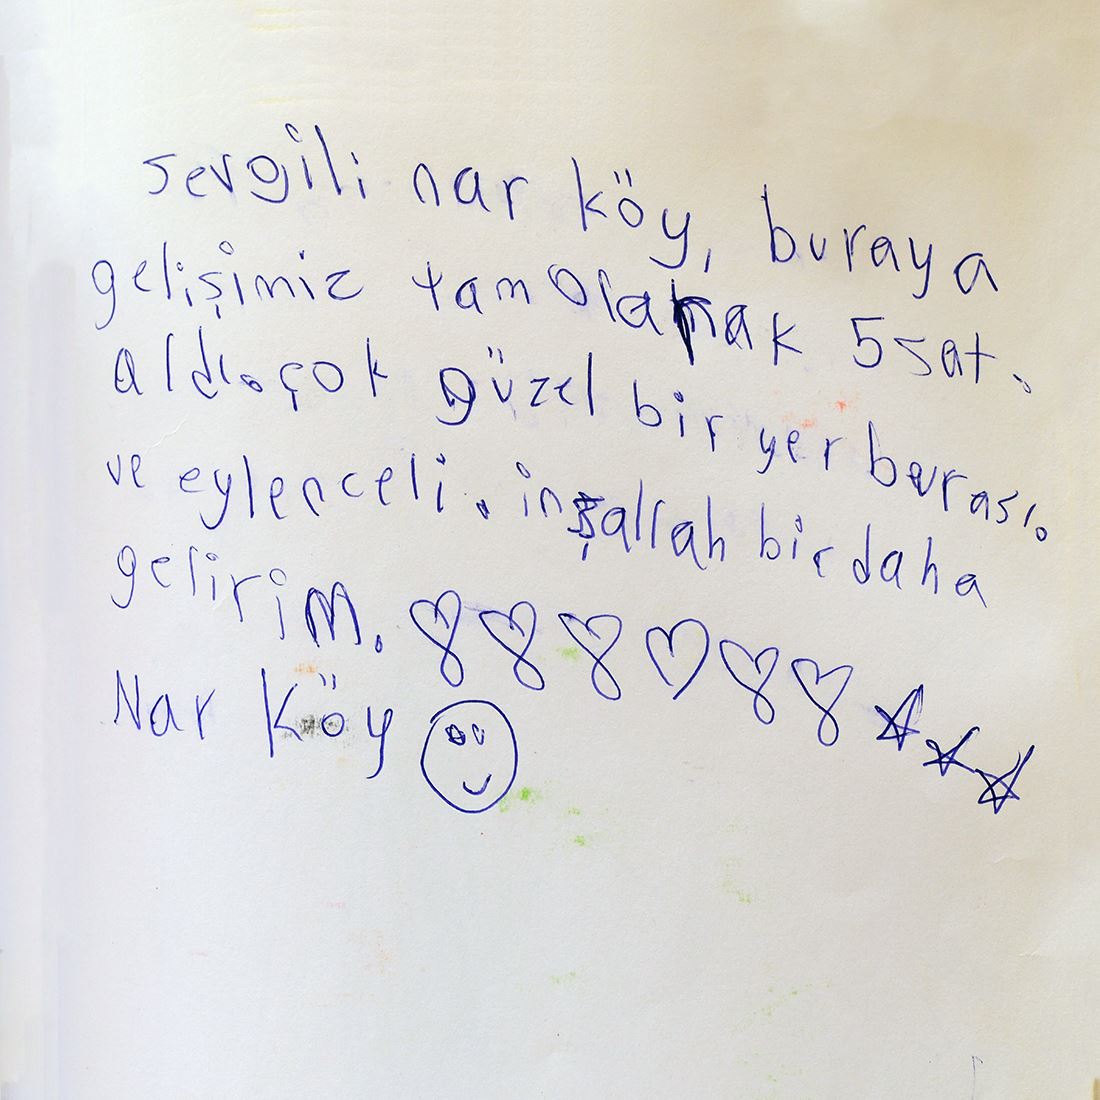 sevgili nar köy, buraya
gelişimiz tam olarak 5 sat.
aldı. çok güzel bir yer burası.
ve eylenceli. inşallah bir daha
gelirim.
Nar Köy